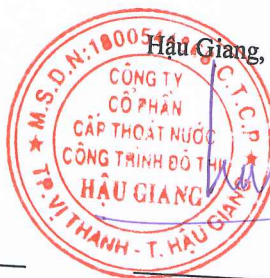 Hậu Giang,
M.S.D.N:18005 C.T.C.P
CÔNG TY
CỔ PHẦN
CẤP THOÁT NƯỚC
CÔNG TRÌNH ĐÔ THỊ
HẬU GIANG
TP. VỊ THANH - T. HẬU GIANG